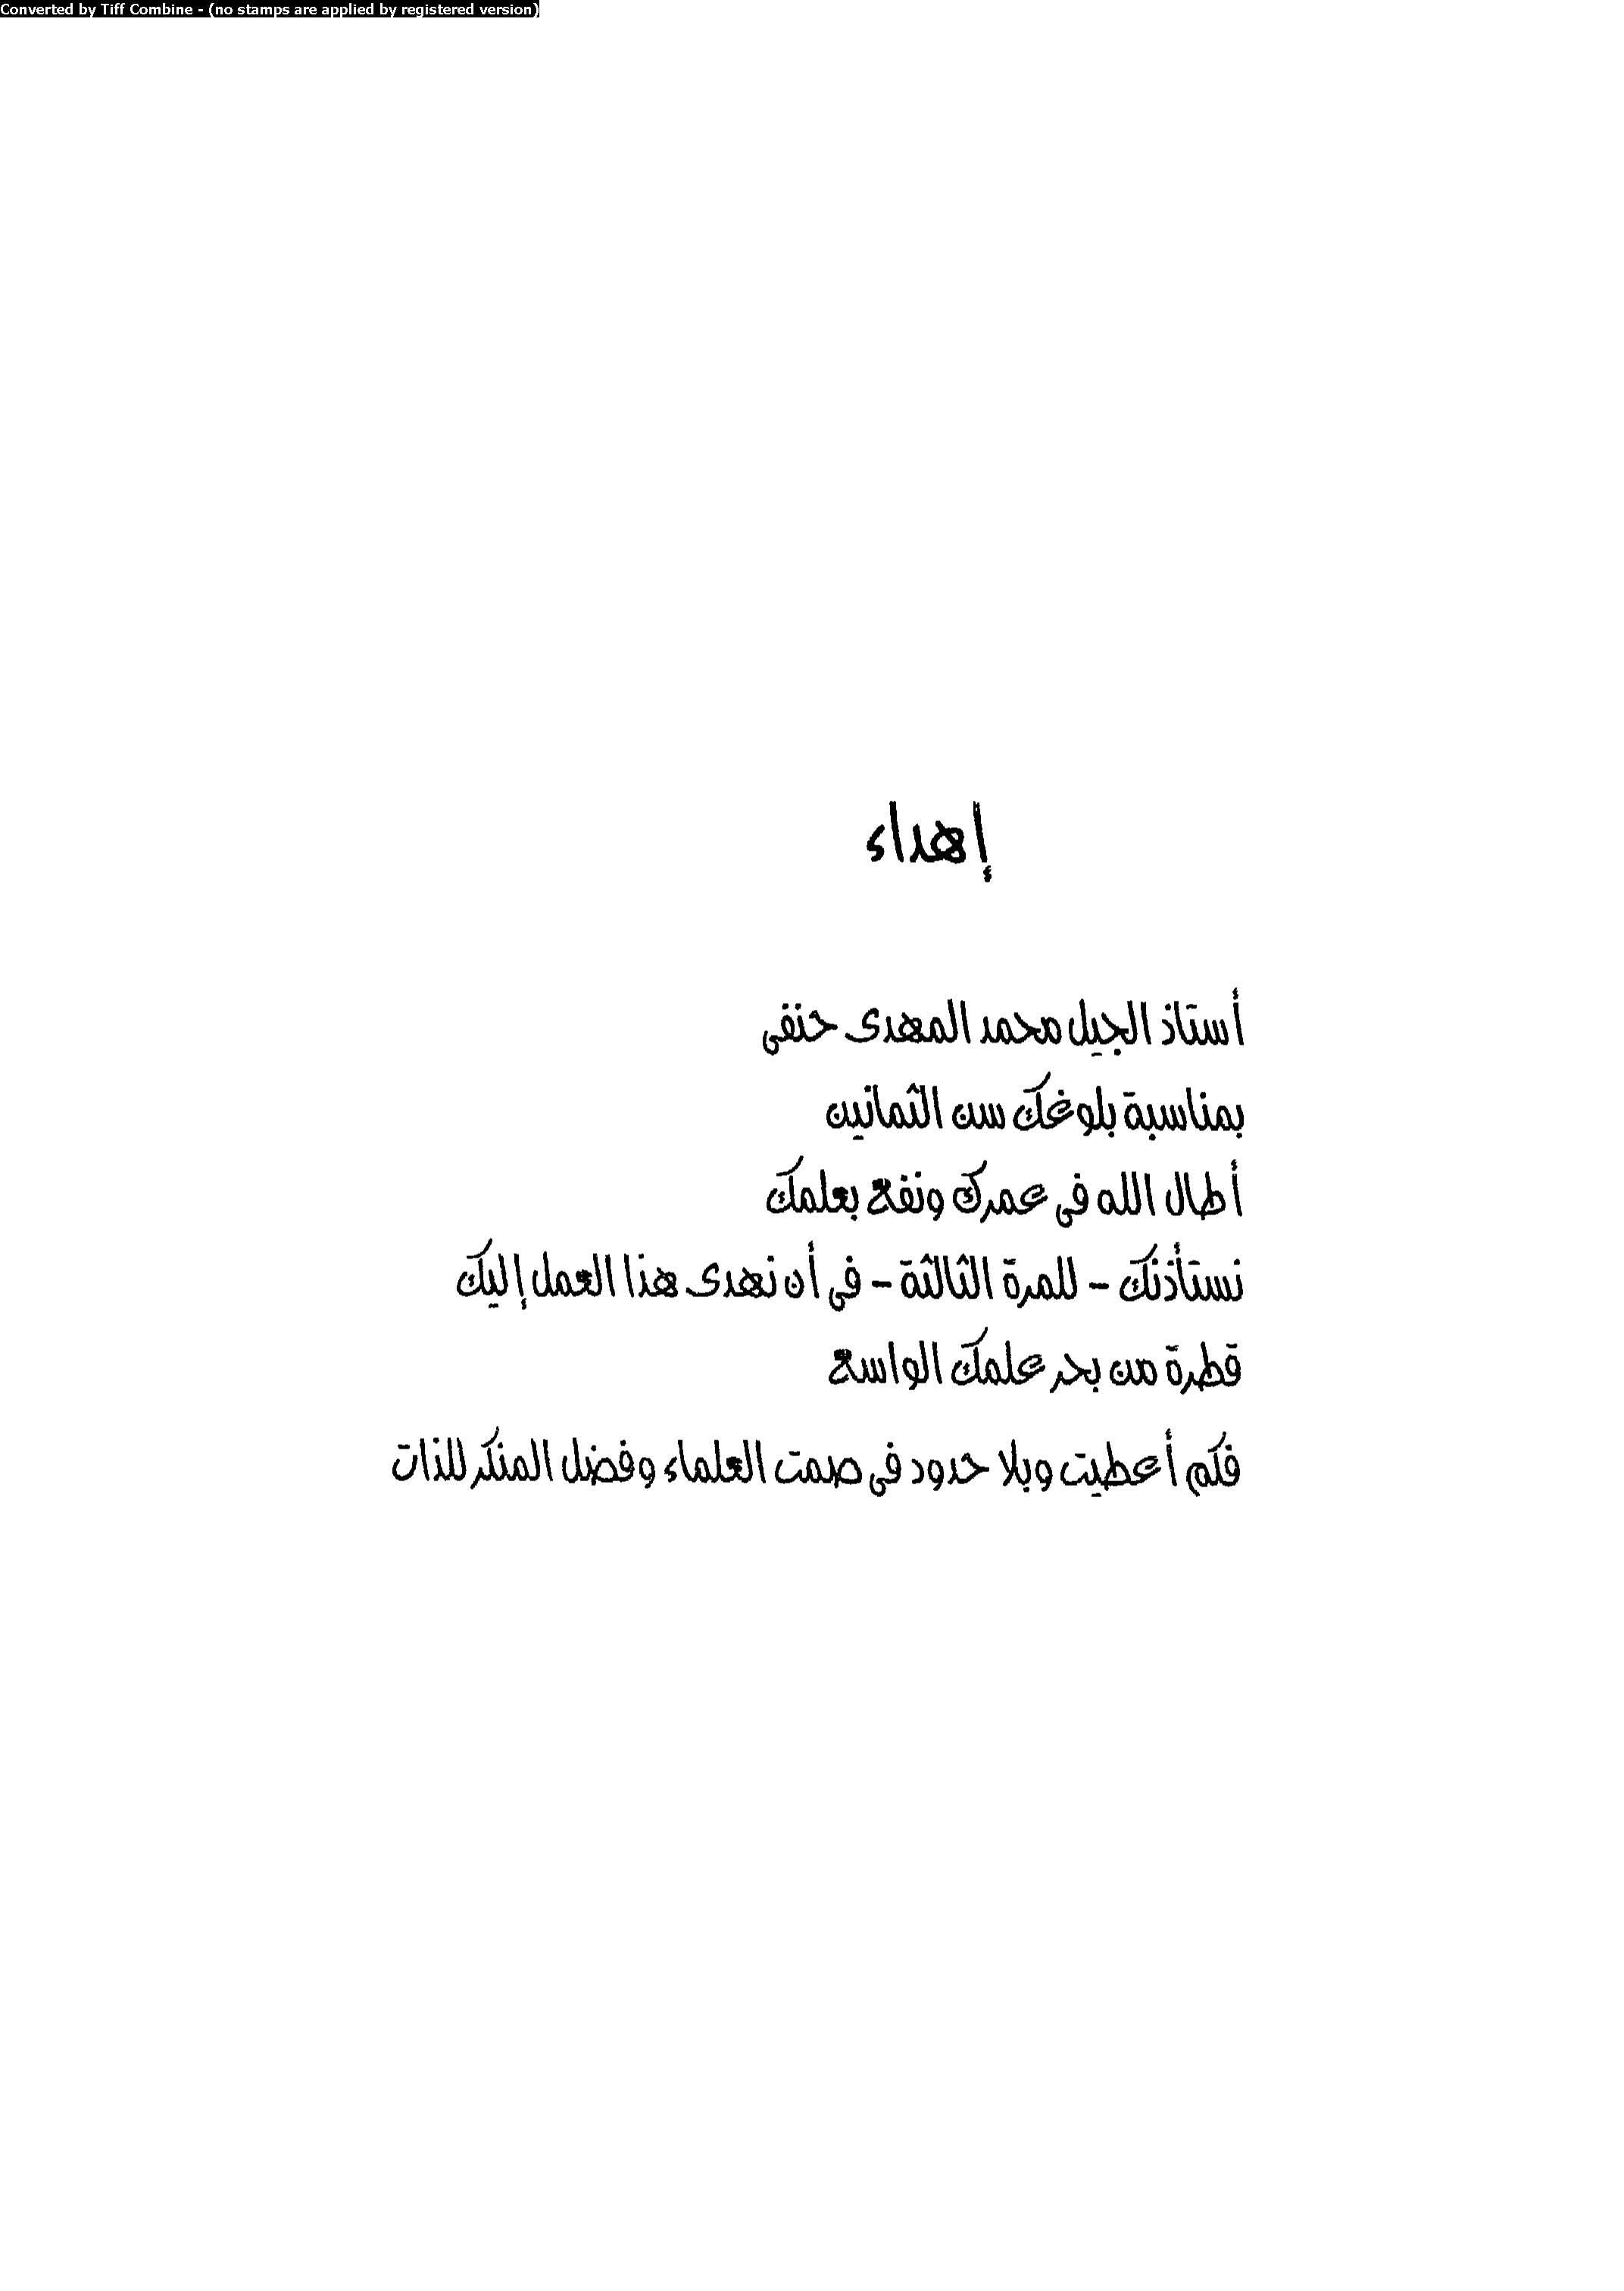 Converted by Tiff Combine - (no stamps are applied by registered version)
إهداء
أستاذ الجيل محمد المهدى حنفى
بمناسبة بلوغك سن الثمانين
أطال الله فى عمرك ونفع بعلمك
نستأذنك - للمرة الثالثة - فى أن نهدى هذا العمل إليك
قطرة من بحر علمك الواسع
فكم أعطيت وبلا حدود فى صمت العلماء وفضل المنكر للذات